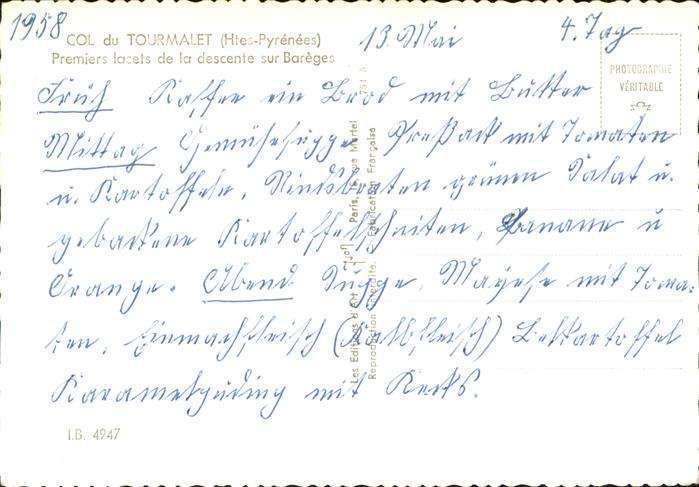 1958
13. Mai
4. Tag
COL du TOURMALET (Htes-Pyrénées)
Premiers lacets de la descente sur Barèges
PHOTOGRAPHIE
VÉRITABLE
Früh Kaffee ein Brod mit Butter
Mittag Gemüsesuppe Preßack mit Tomaten
u. Kartoffeln, Rindsbraten grünen Salat u.
gebackene Kartoffelschnitten, Banane u
Orange. Abend Suppe, Mayese mit Toma-
ten, Einmachfleisch (Kalbfleisch) Beckartoffel
Karamelpuding mit Keeks.
Les Editions d'Art
Paris, rue Martel
Reproduction interdite. Fabrication Française
I.B. 4947